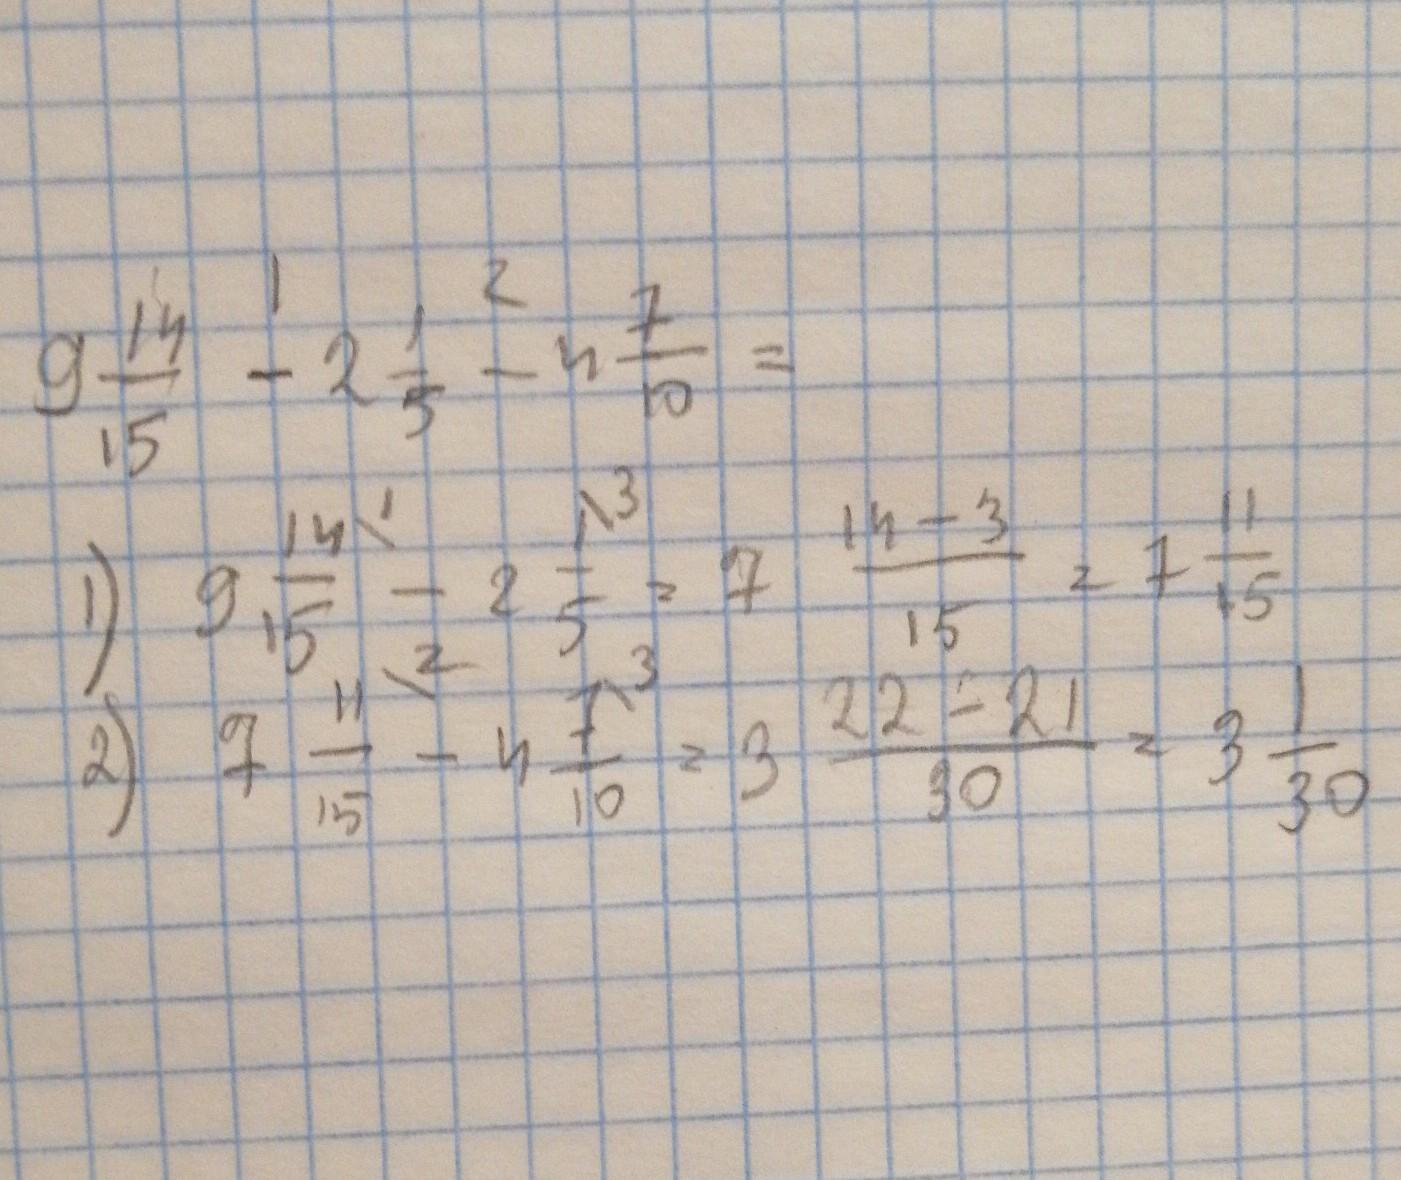 9 14/15 - 2 1/5 - 4 7/10 =
1 2
1) 9 14/15 \1 - 2 1/5 \3 = 7 (14 - 3)/15 = 7 11/15
2) 7 11/15 \2 - 4 7/10 \3 = 3 (22 - 21)/30 = 3 1/30